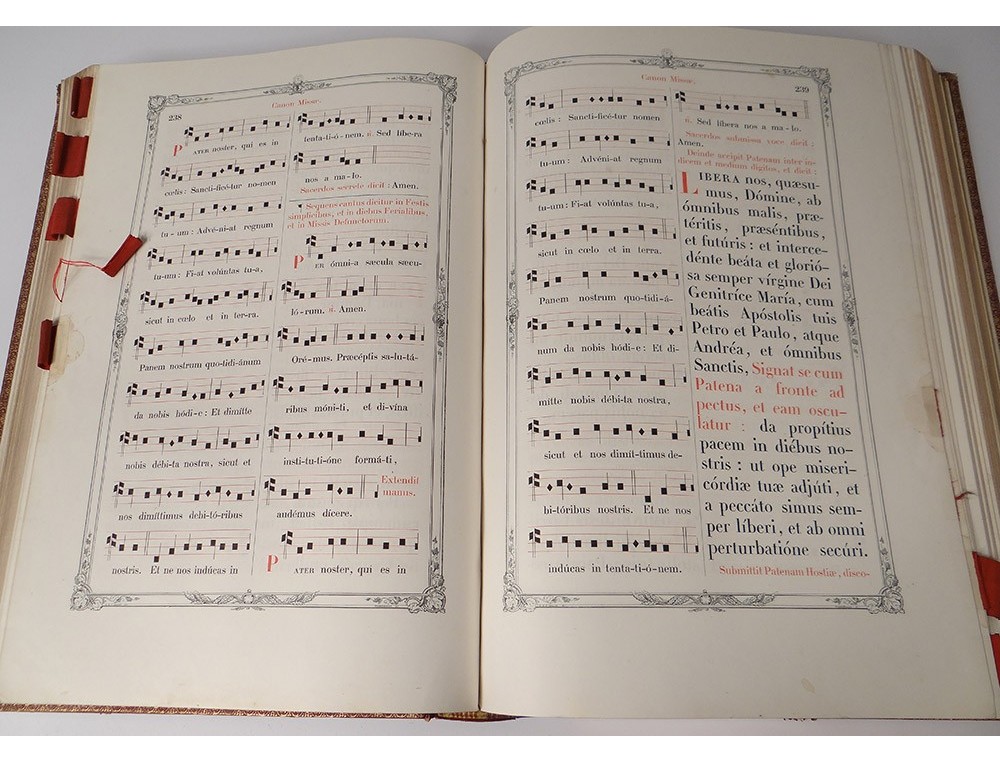 Canon Missæ.
238
PATER noster, qui es in
cœlis: Sancti-ficé-tur no-men
tu-um: Advé-ni-at regnum
tu-um: Fi-at volúntas tu-a,
sicut in cœlo et in ter-ra.
Panem nostrum quo-tidi-ánum
da nobis hódi-e: Et dimítte
nobis débi-ta nostra, sicut et
nos dimíttimus debi-tó-ribus
nostris. Et ne nos indúcas in
tenta-ti-ó-nem. ℟. Sed líbe-ra
nos a ma-lo.
Sacerdos secrete dicit: Amen.
¶ Sequens cantus dicitur in Festis
simplicibus, et in diebus Ferialibus,
et in Missis Defunctorum.
PER ómni-a sæcula sæcu-
ló-rum. ℟. Amen.
Oré-mus. Præcéptis sa-lu-tá-
ribus móni-ti, et di-vína
insti-tu-ti-óne formá-ti,
Extendit
manus.
audémus dícere.
PATER noster, qui es in
Canon Missæ.
239
cœlis: Sancti-ficé-tur nomen
tu-um: Advéni-at regnum
tu-um: Fi-at volúntas tu-a,
sicut in cœlo et in terra.
Panem nostrum quo-tidi-á-
num da nobis hódi-e: Et di-
mítte nobis débi-ta nostra,
sicut et nos dimít-timus de-
bi-tóribus nostris. Et ne nos
indúcas in tenta-ti-ó-nem.
℟. Sed líbera nos a ma-lo.
Sacerdos submissa voce dicit:
Amen.
Deinde accipit Patenam inter in-
dicem et medium digitos, et dicit:
LIBERA nos, quæsu-
mus, Dómine, ab
ómnibus malis, præ-
téritis, præséntibus,
et futúris: et interce-
dénte beáta et glorió-
sa semper vírgine Dei
Genitríce María, cum
beátis Apóstolis tuis
Petro et Paulo, atque
Andréa, et ómnibus
Sanctis, Signat se cum
Patena a fronte ad
pectus, et eam oscu-
latur: da propítius
pacem in diébus no-
stris: ut ope miseri-
córdiæ tuæ adjúti, et
a peccáto simus sem-
per líberi, et ab omni
perturbatióne secúri.
Submittit Patenam Hostiæ, disco-